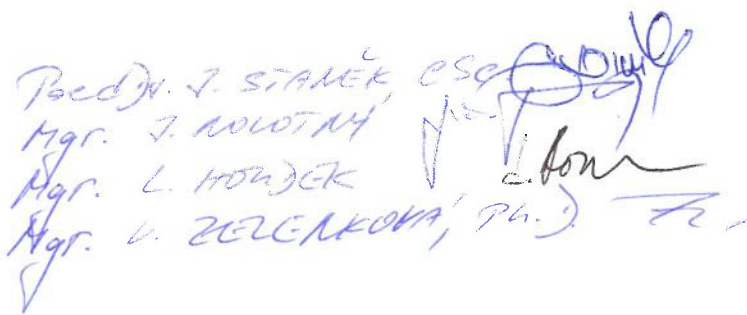 PaedDr. J. STANĚK, CSc.
Mgr. J. NOVOTNÝ
Mgr. L. HONZEK
Mgr. V. ZELENKOVÁ, Ph.D.